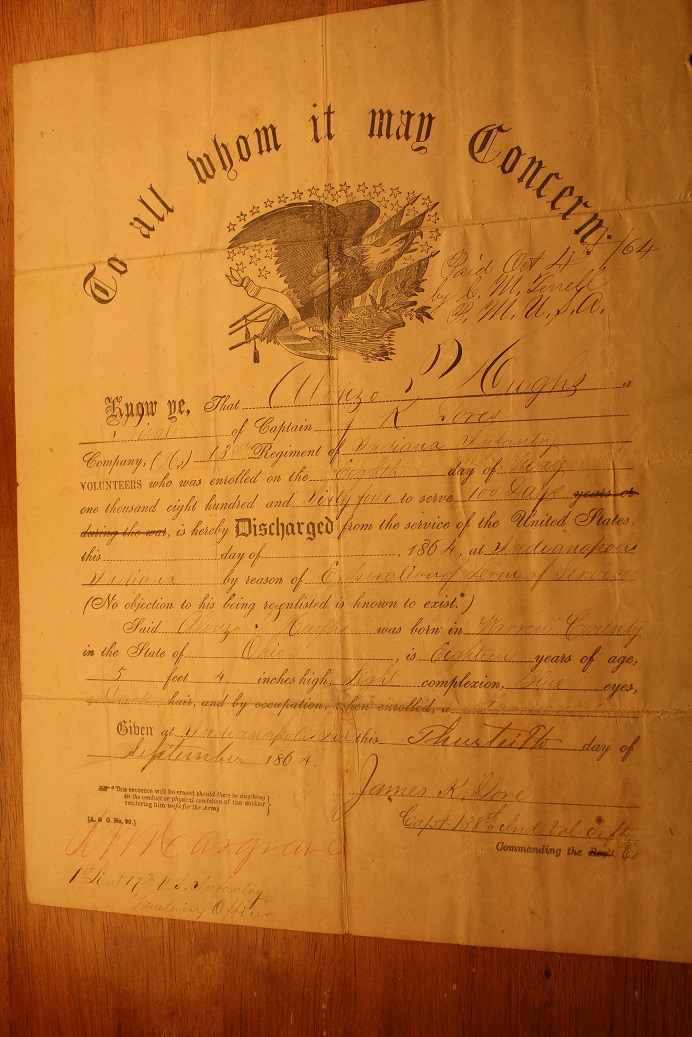 To all whom it may Concern:
Paid Oct 4th /64
by C. M. Terrell
P. M. U. S. A.
Know ye, That Alonzo P Hughs a
Private of Captain J K Gore's
Company, ( ) 13 Regiment of Indiana Infantry
VOLUNTEERS who was enrolled on the Eighth day of May
one thousand eight hundred and Sixty four to serve 100 Days years or
during the war, is hereby Discharged from the service of the United States,
this day of , 1864, at Indianapolis
Indiana by reason of Expiration of Term of Service
(No objection to his being re-enlisted is known to exist.*)
Said Alonzo P Hughs was born in Warren County
in the State of Ohio , is Eighteen years of age,
5 feet 4 inches high, light complexion, Blue eyes,
hair, and by occupation, when enrolled, a
Given at Indianapolis Ind this Thirtieth day of
September 1864.
* This sentence will be erased should there be anything
in the conduct or physical condition of the soldier
rendering him unfit for the Army
James K. Gore
[A. G. O. No. 99.]
Capt 138th Ind Vol Infty
Commanding the Reg't Co
Musgrave
1st Lieut 17th U. S. Infantry
Mustering Officer